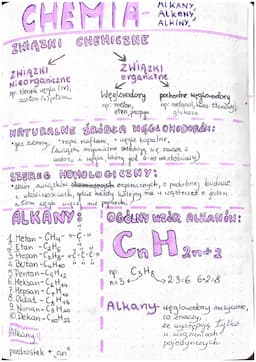 CHEMIA - ALKANY,
ALKENY,
ALKINY,
ZWIĄZKI CHEMICZNE
ZWIĄZKI nieorganiczne
np. tlenek węgla (IV),
ZWIĄZKI organiczne
Węglowodory
np. metan,
eten, propyn
pochodne węglowodorów
np. metanol, kwas
glukoza
NATURALNE ŹRÓDŁA WĘGLOWODORÓW:
• gaz ziemny • ropa naftowa, • węgle kopalne,
(związki organiczne składają się zawsze z
SZEREG HOMOLOGICZNY:
- zbiór związków organicznych, o podobnej budowie
i właściwościach, gdzie każdy kolejny ma w cząsteczce o jeden
ALKANY:
1. Metan - CH4
2. Etan - C2H6
3. Propan - C3H8
4. Butan - C4H10
5. Pentan - C5H12
6. Heksan - C6H14
7. Heptan - C7H16
8. Oktan - C8H18
9. Nonan - C9H20
10. Dekan - C10H22
Alkany:
przedrostek + "an"
OGÓLNY WZÓR ALKANÓW:
CnH2n+2
np. C3H8
n=3 2·3=6 6+2=8
Alkany - węglowodory nasycone,
co znaczy,
że występują tylko
w wiązaniach
pojedynczych.